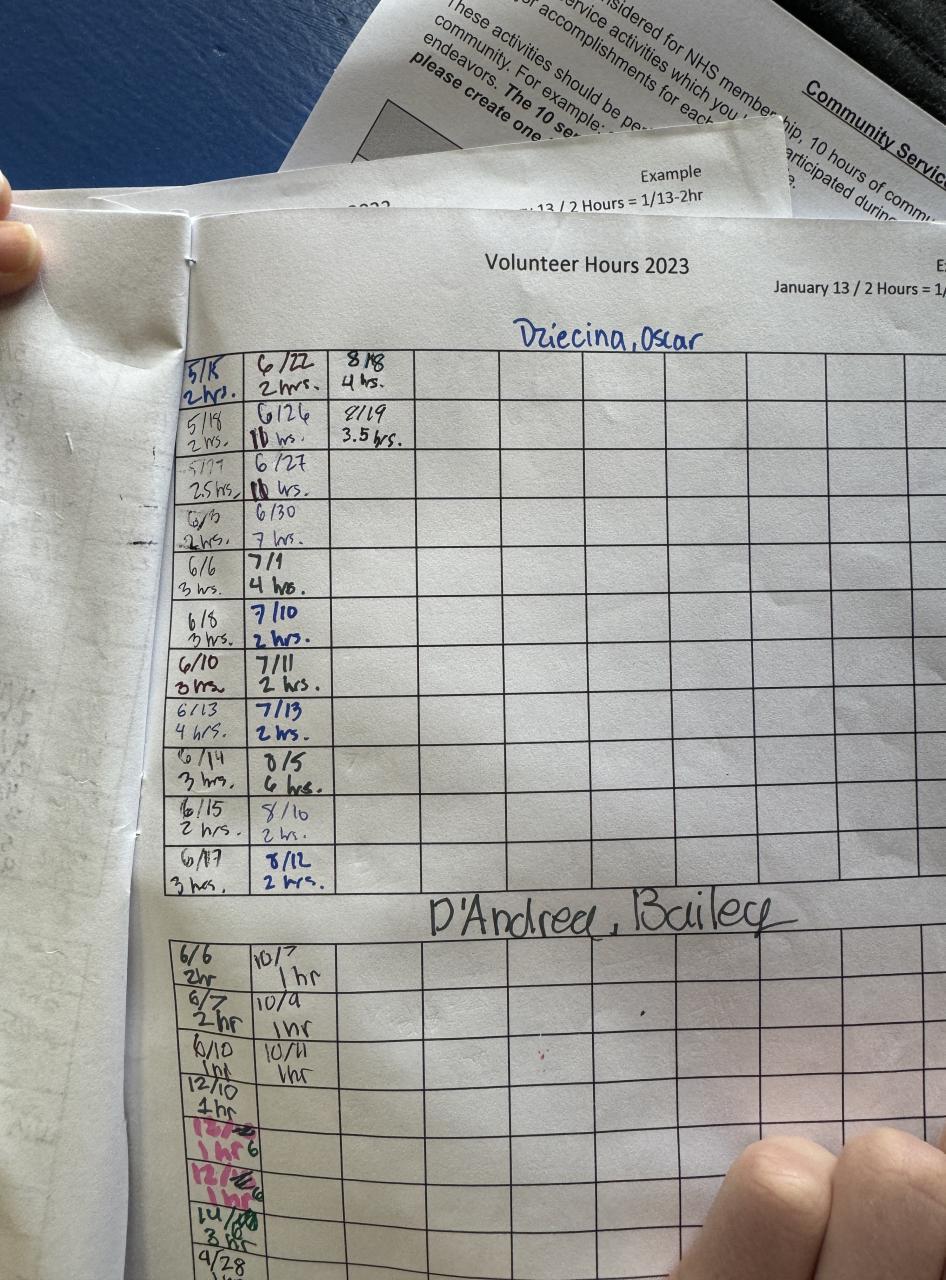 Community Service
nsidered for NHS membership, 10 hours of commu
ervice activities which you
articipated during
or accomplishments for each
These activities should be per
community. For example:
endeavors. The 10 se
please create one
Example
13 / 2 Hours = 1/13-2hr
Volunteer Hours 2023
January 13 / 2 Hours = 1/
Dziecina, Oscar
5/15 6/22 8/18
2 hrs. 2 hrs. 4 hrs.
5/18 6/26 8/19
2 hrs. hrs. 3.5 hrs.
6/27
2.5 hrs. hrs.
6/3 6/30
2 hrs. 7 hrs.
6/6 7/1
3 hrs. 4 hrs.
6/8 7/10
3 hrs. 2 hrs.
6/10 7/11
3 hrs 2 hrs.
6/13 7/13
4 hrs. 2 hrs.
6/14 8/5
3 hrs. 6 hrs.
6/15 8/10
2 hrs. 2 hrs.
6/17 8/12
3 hrs. 2 hrs.
D'Andrea, Bailey
6/6 10/7
2hr 1 hr
6/7 10/9
2 hr 1hr
6/10 10/11
1hr 1hr
12/10
1 hr
1 hr
1 hr
3 hr
4/28